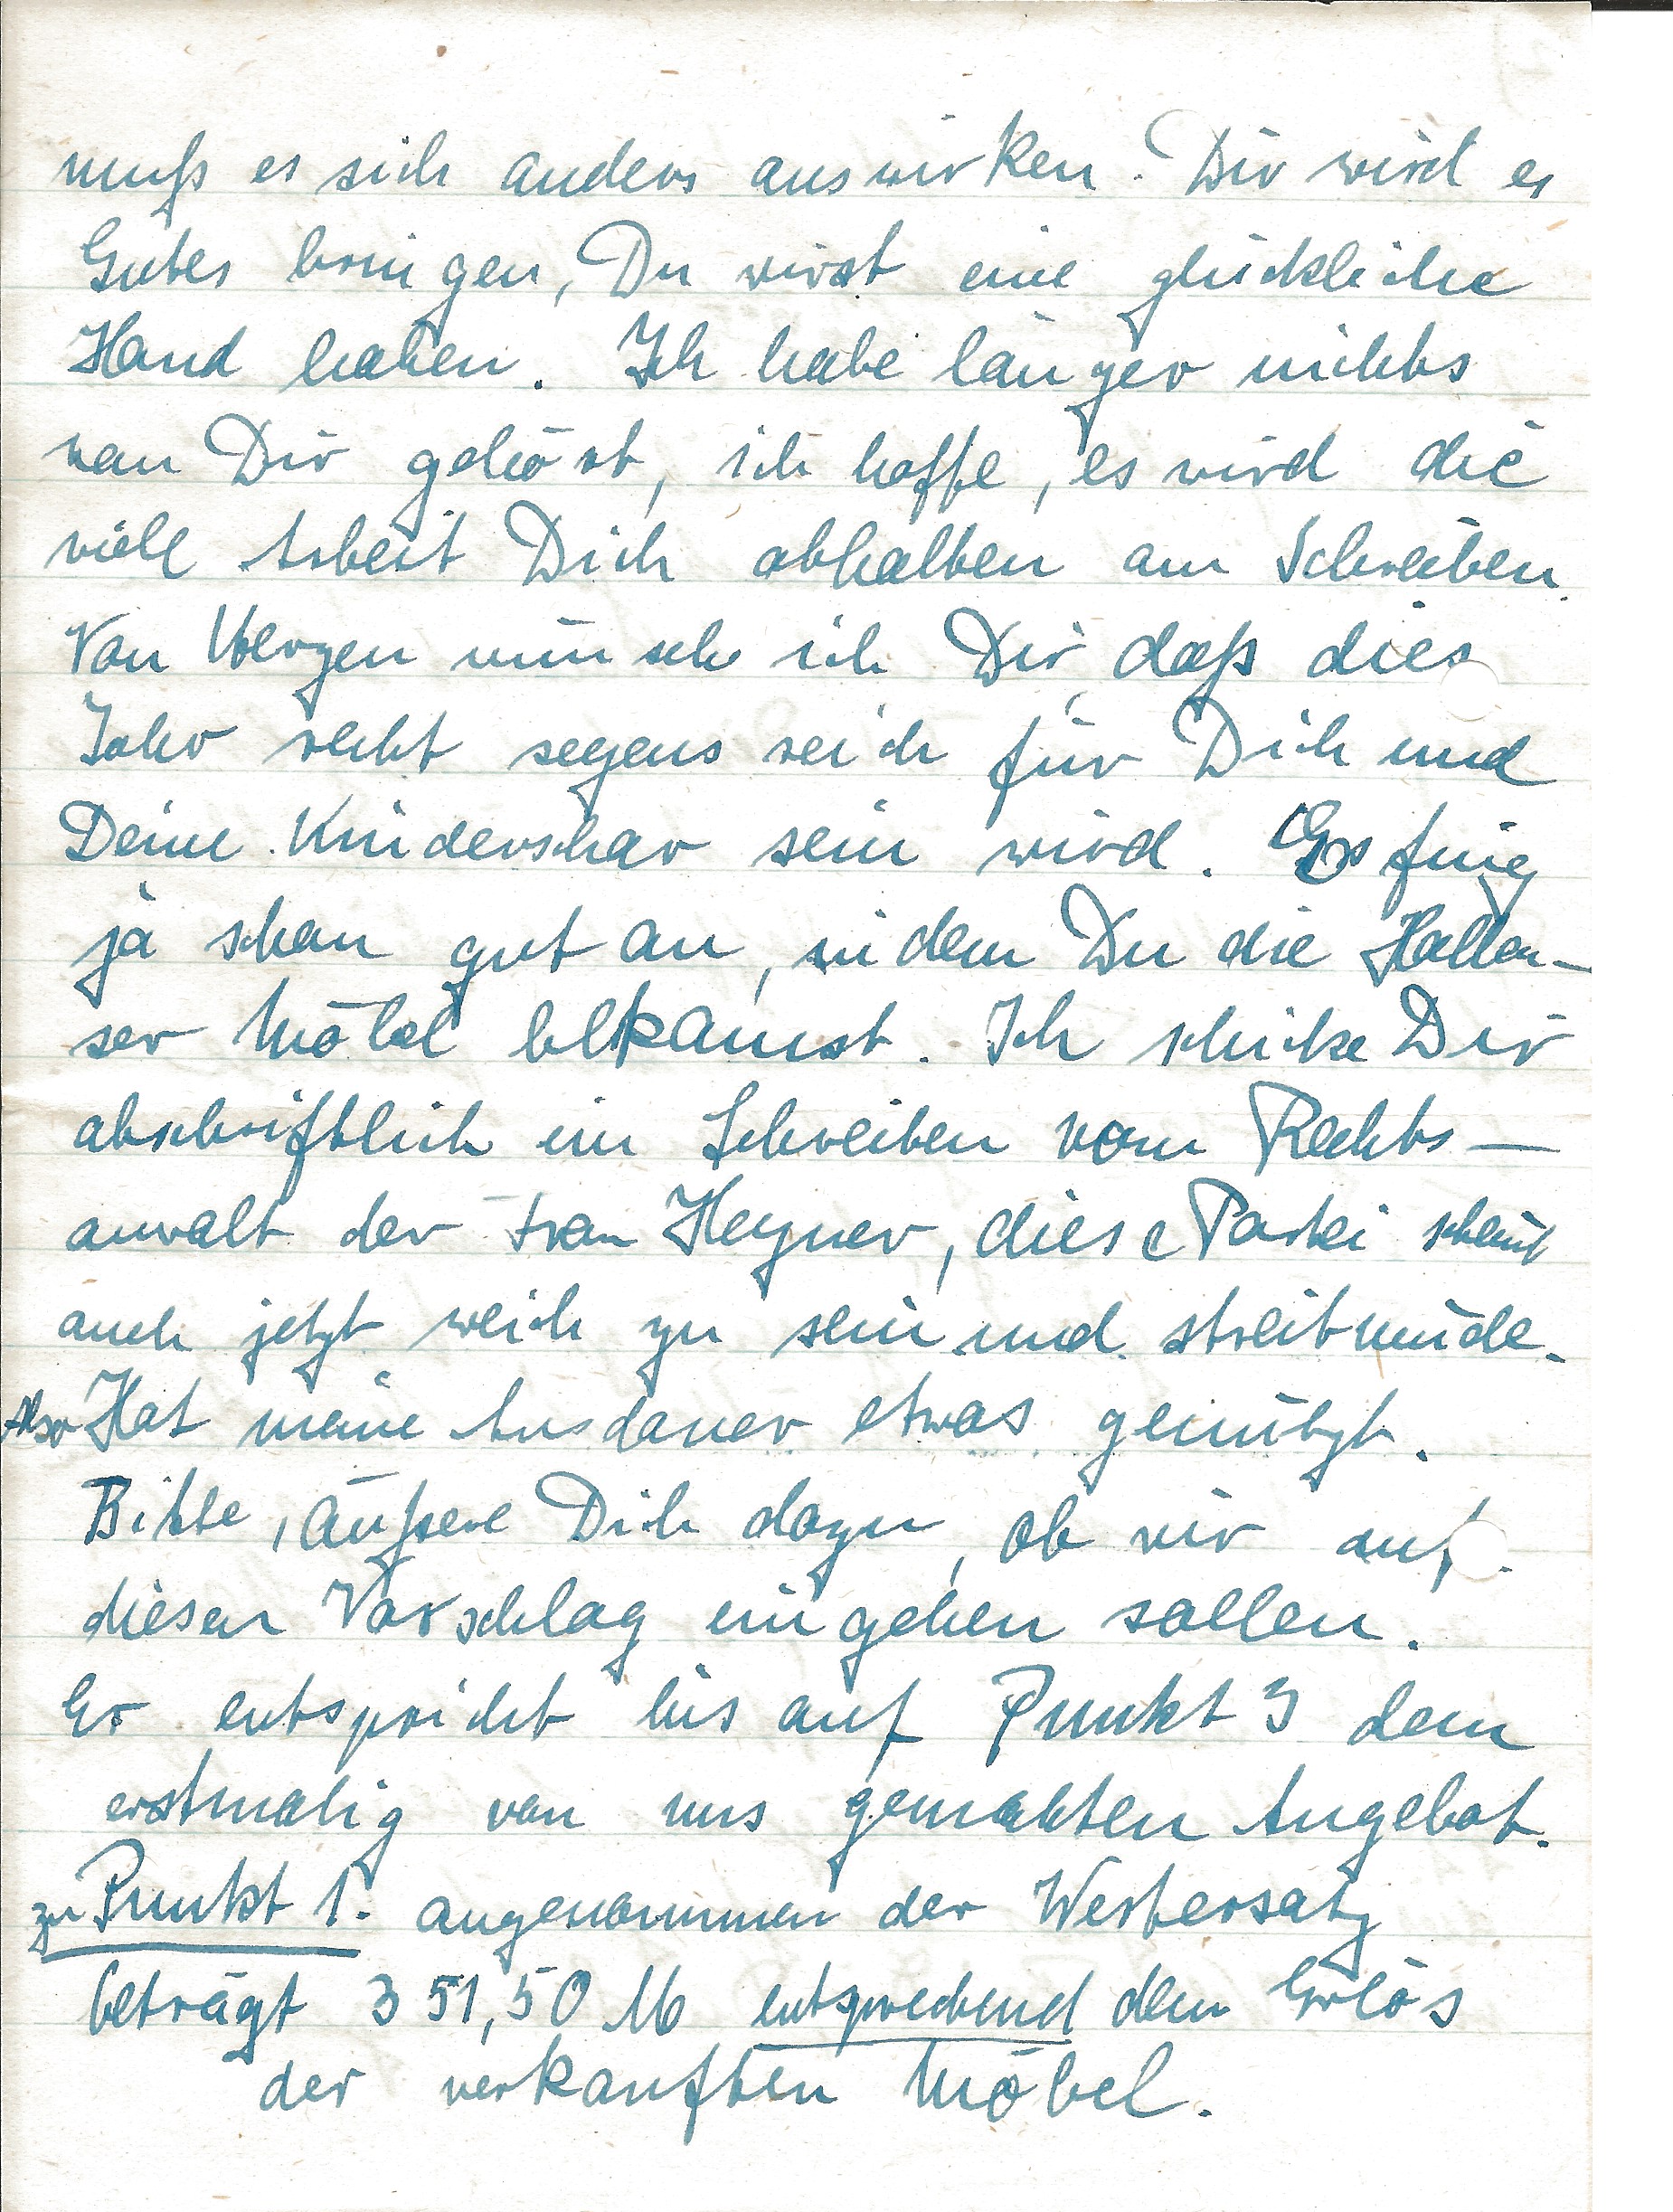 muß es sich anders auswirken. Dir wird es
Gutes bringen, Du wirst eine glückliche
Hand haben. Ich habe länger nichts
von Dir gehört, ich hoffe, es wird die
viele Arbeit Dich abhalten am Schreiben.
Von Herzen wünsche ich Dir, daß dies
Jahr recht segensreich für Dich und
Deine Kinderschar sein wird. Es fing
ja schon gut an, indem Du die Hallen-
ser Möbel bekamst. Ich schicke Dir
abschriftlich ein Schreiben vom Rechts-
anwalt der Frau Heyner, diese Partei scheint
auch jetzt weich zu sein und streitmüde.
Also Hat meine Ausdauer etwas genützt.
Bitte, äußere Dich dazu, ob wir auf
diesen Vorschlag eingehen sollen.
Er entspricht bis auf Punkt 3 dem
erstmalig von uns gemachten Angebot.
zu Punkt 1. angenommen der Wertersatz
beträgt 351,50 M entsprechend dem Erlös
der verkauften Möbel.